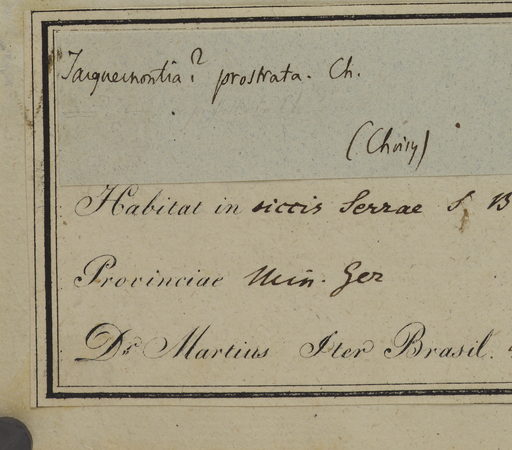 Jacquemontia? prostrata. Ch.
(Choisy)
Habitat in siccis Serrae S B
Provinciae Min. Ger
Dr Martius Iter Brasil.